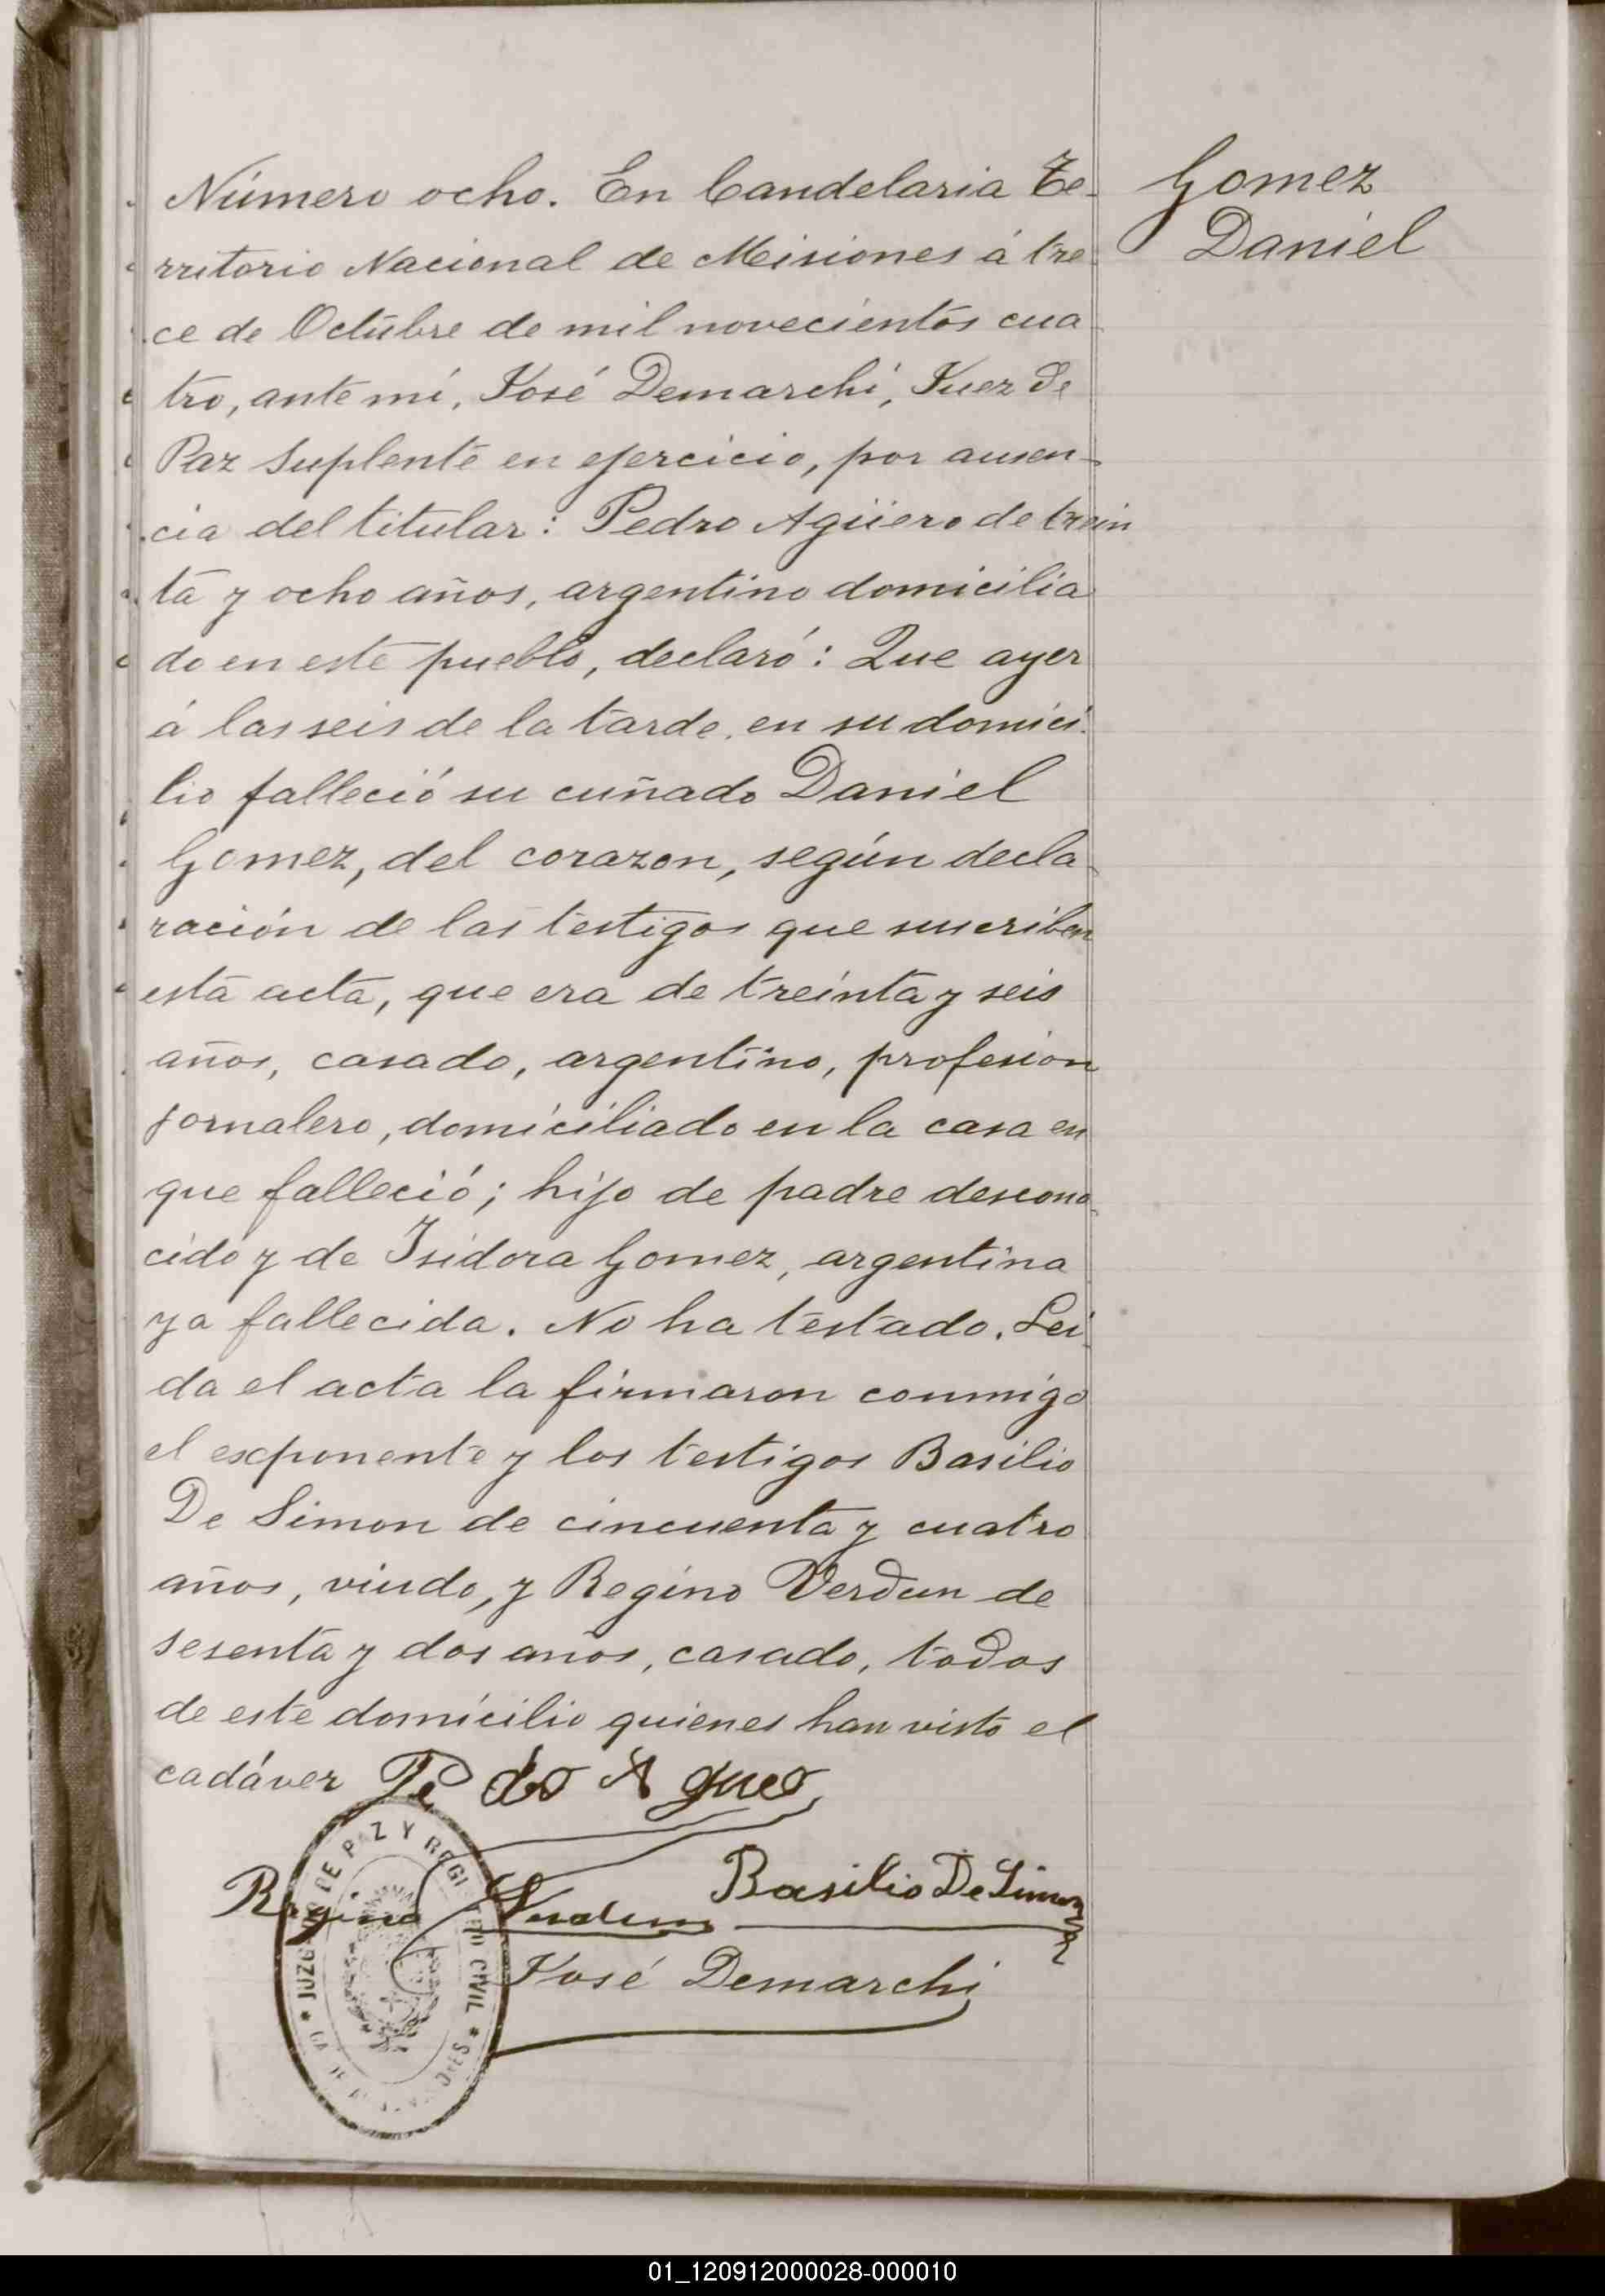 Gomez
Daniel
Número ocho. En Candelaria Te-
rritorio Nacional de Misiones á tre
ce de Octubre de mil novecientos cua
tro, ante mí, José Demarchi, Juez de
Paz Suplente en ejercicio, por ausen-
cia del titular: Pedro Agüero de trein
ta y ocho años, argentino domicilia
do en este pueblo, declaró: Que ayer
á las seis de la tarde, en su domici-
lio falleció su cuñado Daniel
Gomez, del corazon, según decla-
ración de las testigos que suscriben
esta acta, que era de treinta y seis
años, casado, argentino, profesion
jornalero, domiciliado en la casa en
que falleció; hijo de padre descono-
cido y de Isidora Gomez, argentina
ya fallecida. No ha testado. Lei
da el acta la firmaron conmigo
el exponente y los testigos Basilio
De Simon de cincuenta y cuatro
años, viudo, y Regino Verdun de
sesenta y dos años, casado, todos
de este domicilio quienes han visto el
cadáver Pedro Aguero
Regino Verdun Basilio De Simon
José Demarchi
JUZGADO DE PAZ Y REGISTRO CIVIL
01_120912000028-000010